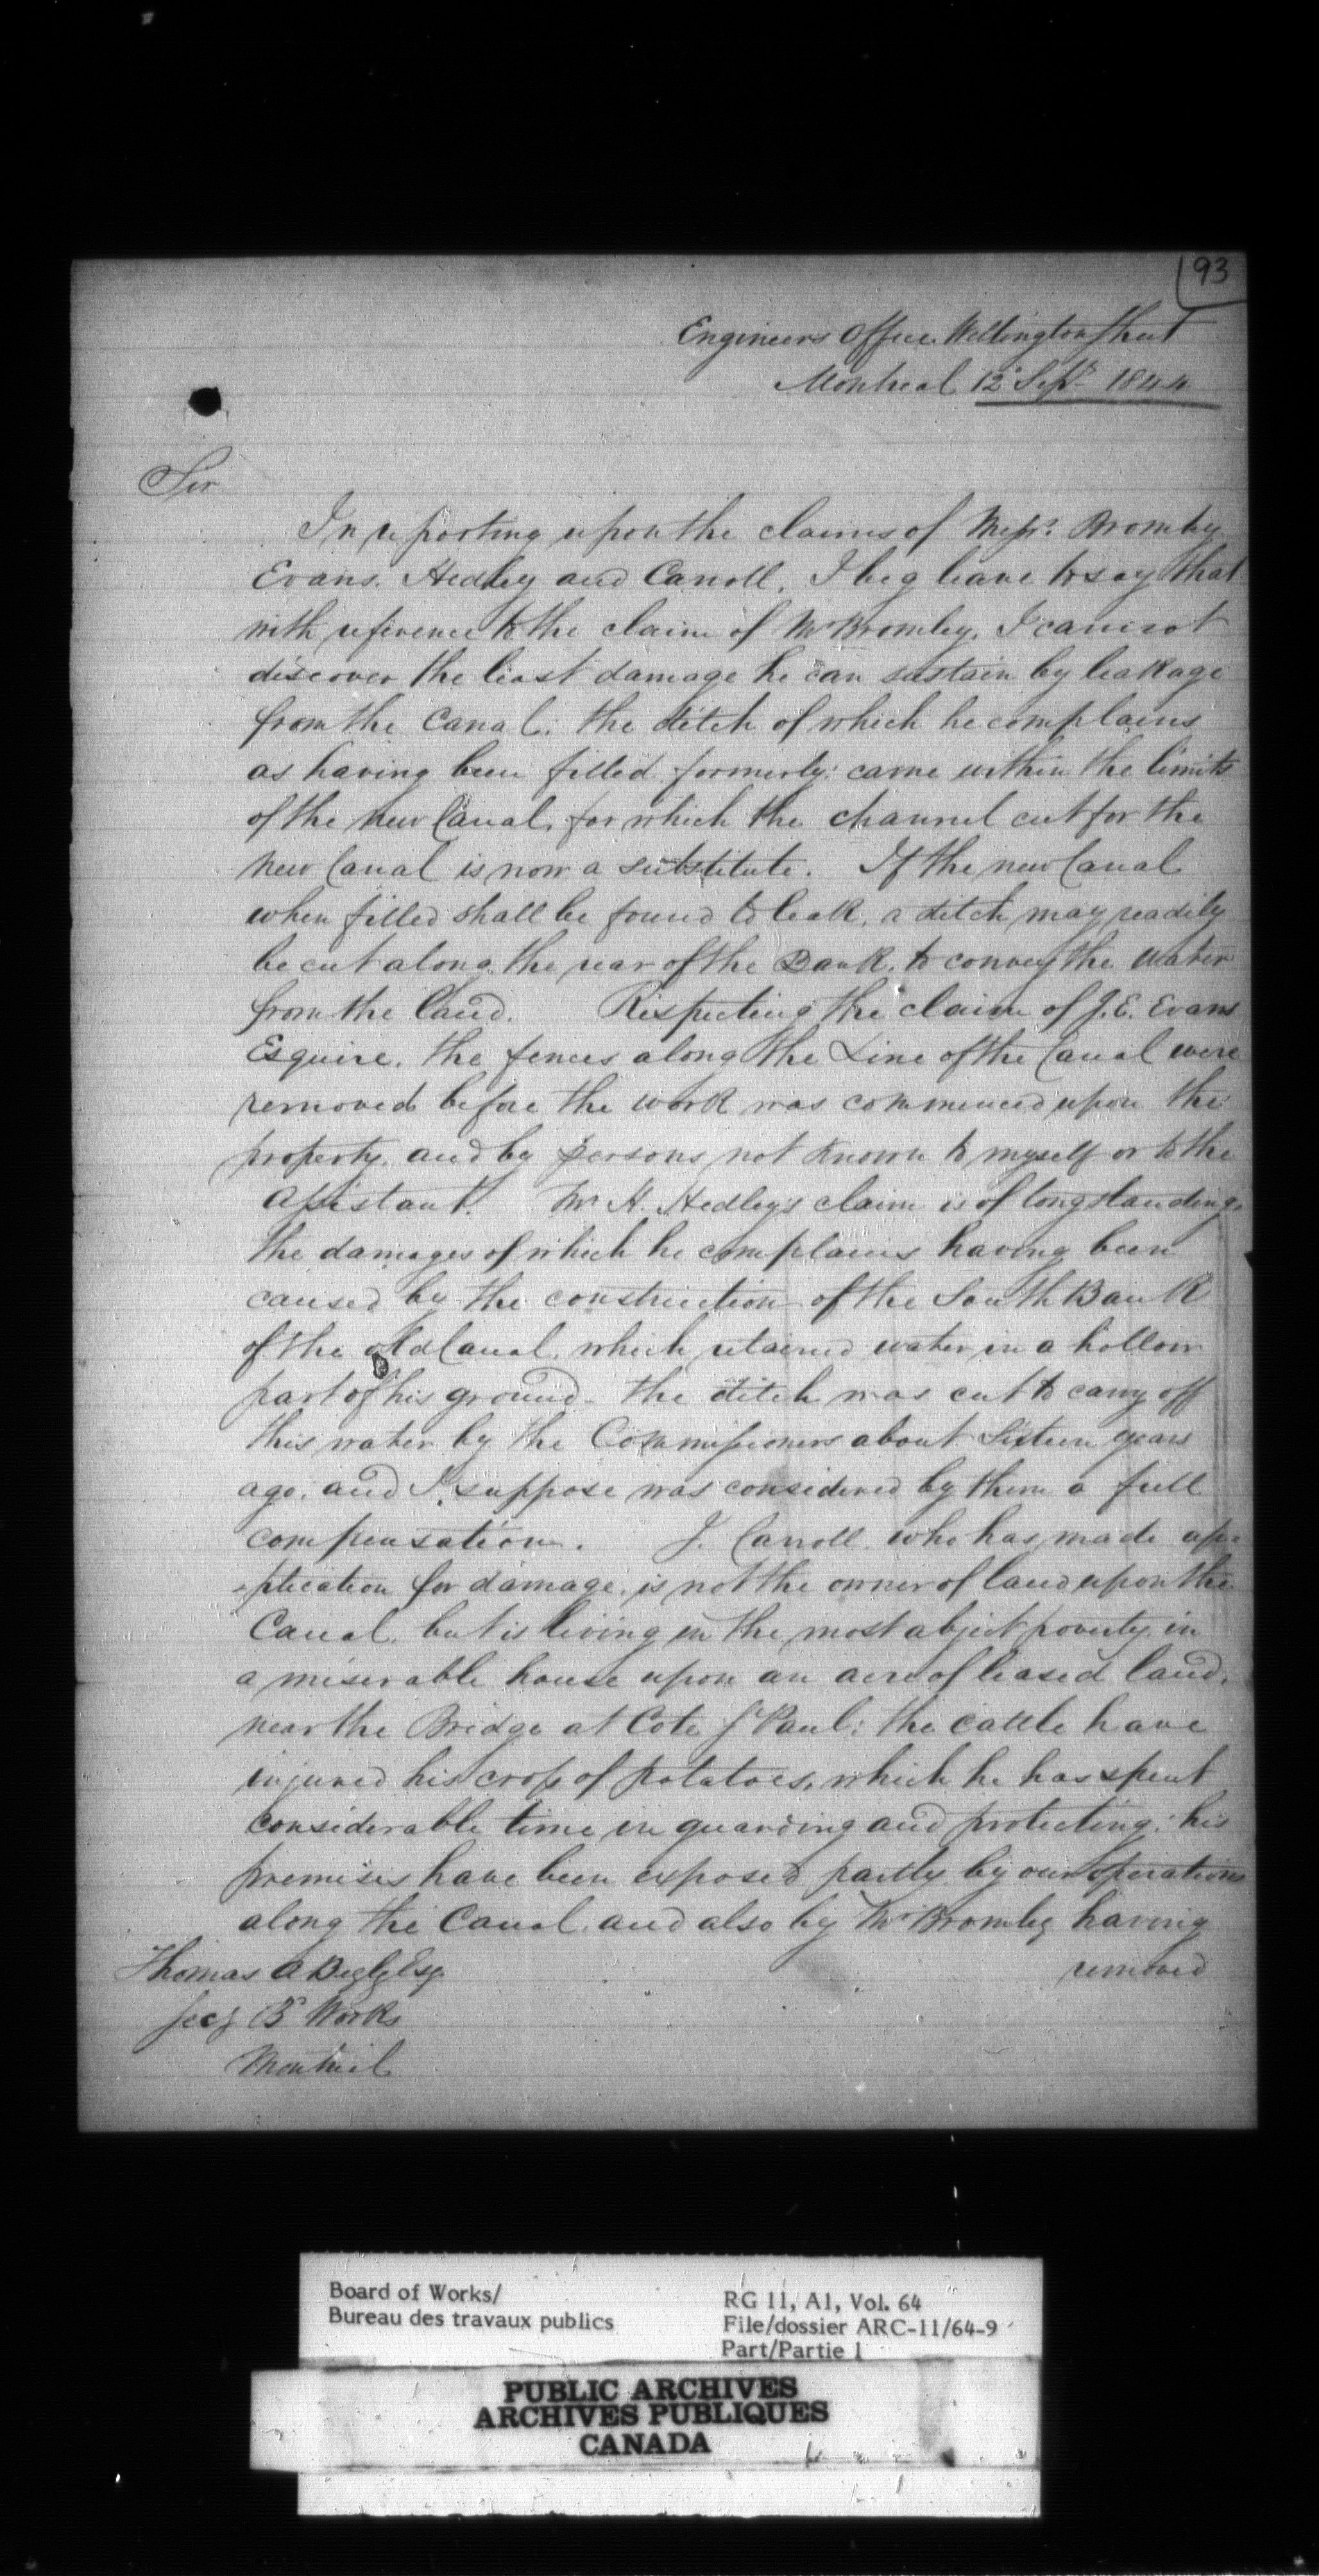 93
Engineers Office Wellington Street
Montreal 12 Sept 1844
Sir
In reporting upon the claims of Messrs. Bromley
Evans. Hedley and Carroll. I beg leave to say that
with reference to the claim of Mr Bromley. I cannot
discover the least damage he can sustain by leakage
from the Canal: the ditch of which he complains
as having been filled formerly: came within the limits
of the New Canal, for which the channel cut for the
New Canal is now a substitute. If the new Canal
when filled shall be found to leak, a ditch may readily
be cut along the rear of the Bank, to convey the water
from the land. Respecting the claim of J. E. Evans
Esquire. the fences along the Line of the Canal were
removed before the work was commenced upon the
property, and by persons not known to myself or to the
Assistant. Mr H. Hedley's claim is of long standing,
the damages of which he complains having been
caused by the construction of the South Bank
of the old Canal, which retained water in a hollow
part of his ground. the ditch was cut to carry off
this water by the Commissioners about Sixteen years
ago. and I suppose was considered by them a full
compensation. J. Carroll who has made ap-
-plication for damage, is not the owner of land upon the
Canal, but is living in the most abject poverty in
a miserable house upon an acre of leased land,
near the Bridge at Cote St Paul: the cattle have
injured his crop of potatoes, which he has spent
considerable time in guarding and protecting: his
premises have been exposed partly by our operations
along the Canal, and also by Mr Bromley having
removed
Thomas A Begly Esq
Secy Bd Works
Montreal
Board of Works/
Bureau des travaux publics
RG 11, A1, Vol. 64
File/dossier ARC-11/64-9
Part/Partie 1
PUBLIC ARCHIVES
ARCHIVES PUBLIQUES
CANADA